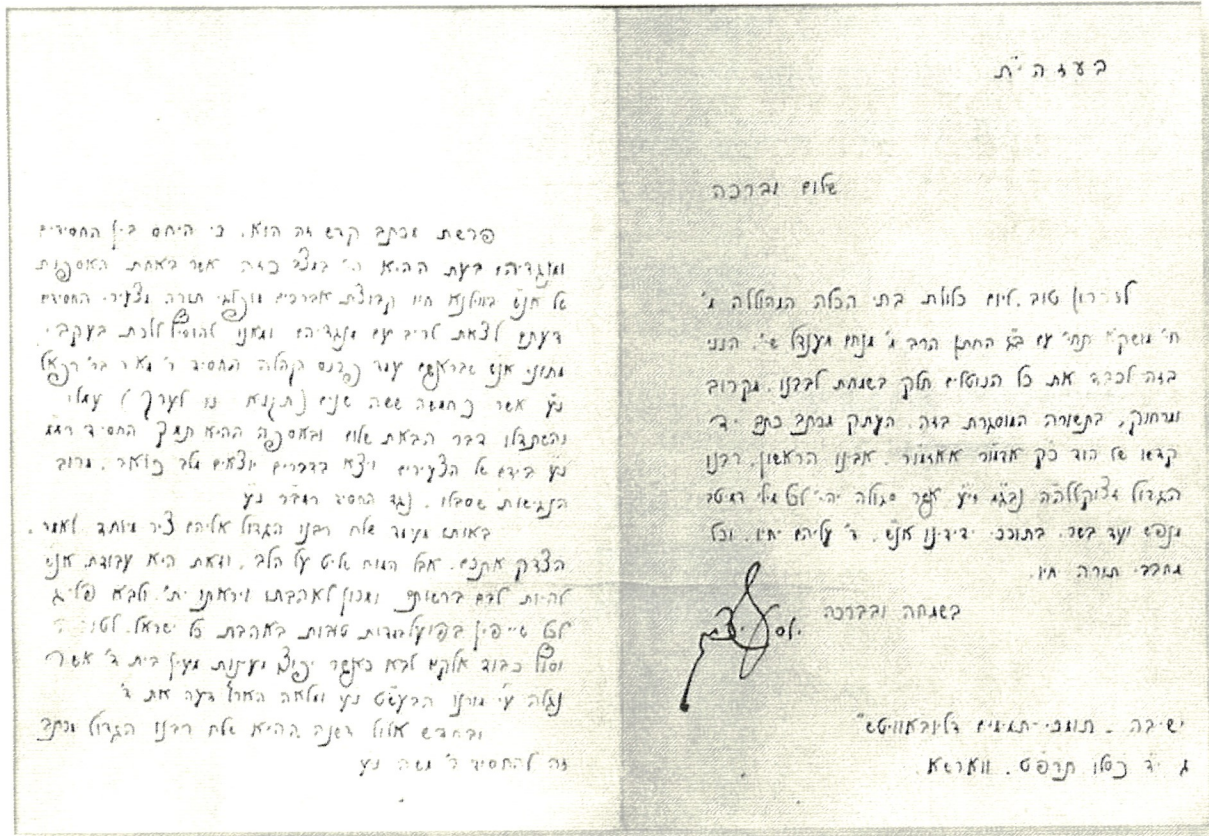 בעזהי"ת
שלום וברכה
לזכרון טוב, ליום כלולת בתי הכלה המהוללה מ'
ח' מושקא תחי' עם ב"ג החתן הרב מ' מנחם מענדל שי', הנני
בזה לכבד את כל הנוטלים חלק בשמחת לבבנו, מקרוב
ומרחוק, בתשורה המוסגרת בזה, העתק מכתב כתב יד
קדשו של הוד כ"ק אדמו"ר אאזמו"ר, אבינו הראשון, רבנו
הגדול נבג"מ זי"ע אשר סגולה יהי' לכל מילי דמיטב
מנפש ועד בשר, בתוככי ידידינו אנ"ש, ד' עליהם יחיו, וכל
מחבבי תורה חיו.
בשמחה ובברכה
ישיבה "תומכי-תמימים דליובאוויטש"
ג' י"ד כסלו תרפ"ט, ווארשא.
פרשת מכתב קדש זה הוא, כי היחס בין החסידים
ומנגדיהם בעת ההיא הי' במצב כזה אשר באחת האספות
של אנ"ש בווילנא חיו קבוצת אברכים מופלגי תורה מצעירי החסידים
דעתם לצאת לריב עם מנגדיהם ומאנו להוסיף ללכת בעקבי
מתיני אנ"ש שבראשם עמד פרנס הקהלה החסיד ר' מאיר בר' רפאל
נ"ע אשר כחמשה ששה שנים (תקנ"א לערך) עמלו
והשתדלו דבר הבאת שלום ובאספה ההיא תמך החסיד
נ"ע בידם של הצעירים ויצא בדברים יוצאים מלב כואב, מרוב
הנגישות שסבלו, נגד החסיד נ"ע
באותו מעמד שלח רבנו הגדול אליהם ציר מיוחד לאמר,
הצדק אתכם, אבל המוח שליט על הלב, וזאת היא עבודת אנ"ש
להיות לבם ברשותם ומכון לאהבתו ויראתו ית', ולבא פליג
לכל שייפין בפועל במדות טובות באהבת כל ישראל,
כבוד אלקים לבא כאשר יפוצו מעינות מעין בית ד' אשר
נגלה ע"י מורנו הבעש"ט נ"ע ומלאה הארץ דעה את ד'
ובחדש אלול דשנה ההיא שלח רבנו הגדול מכתב
זה להחסיד ר' משה נ"ע